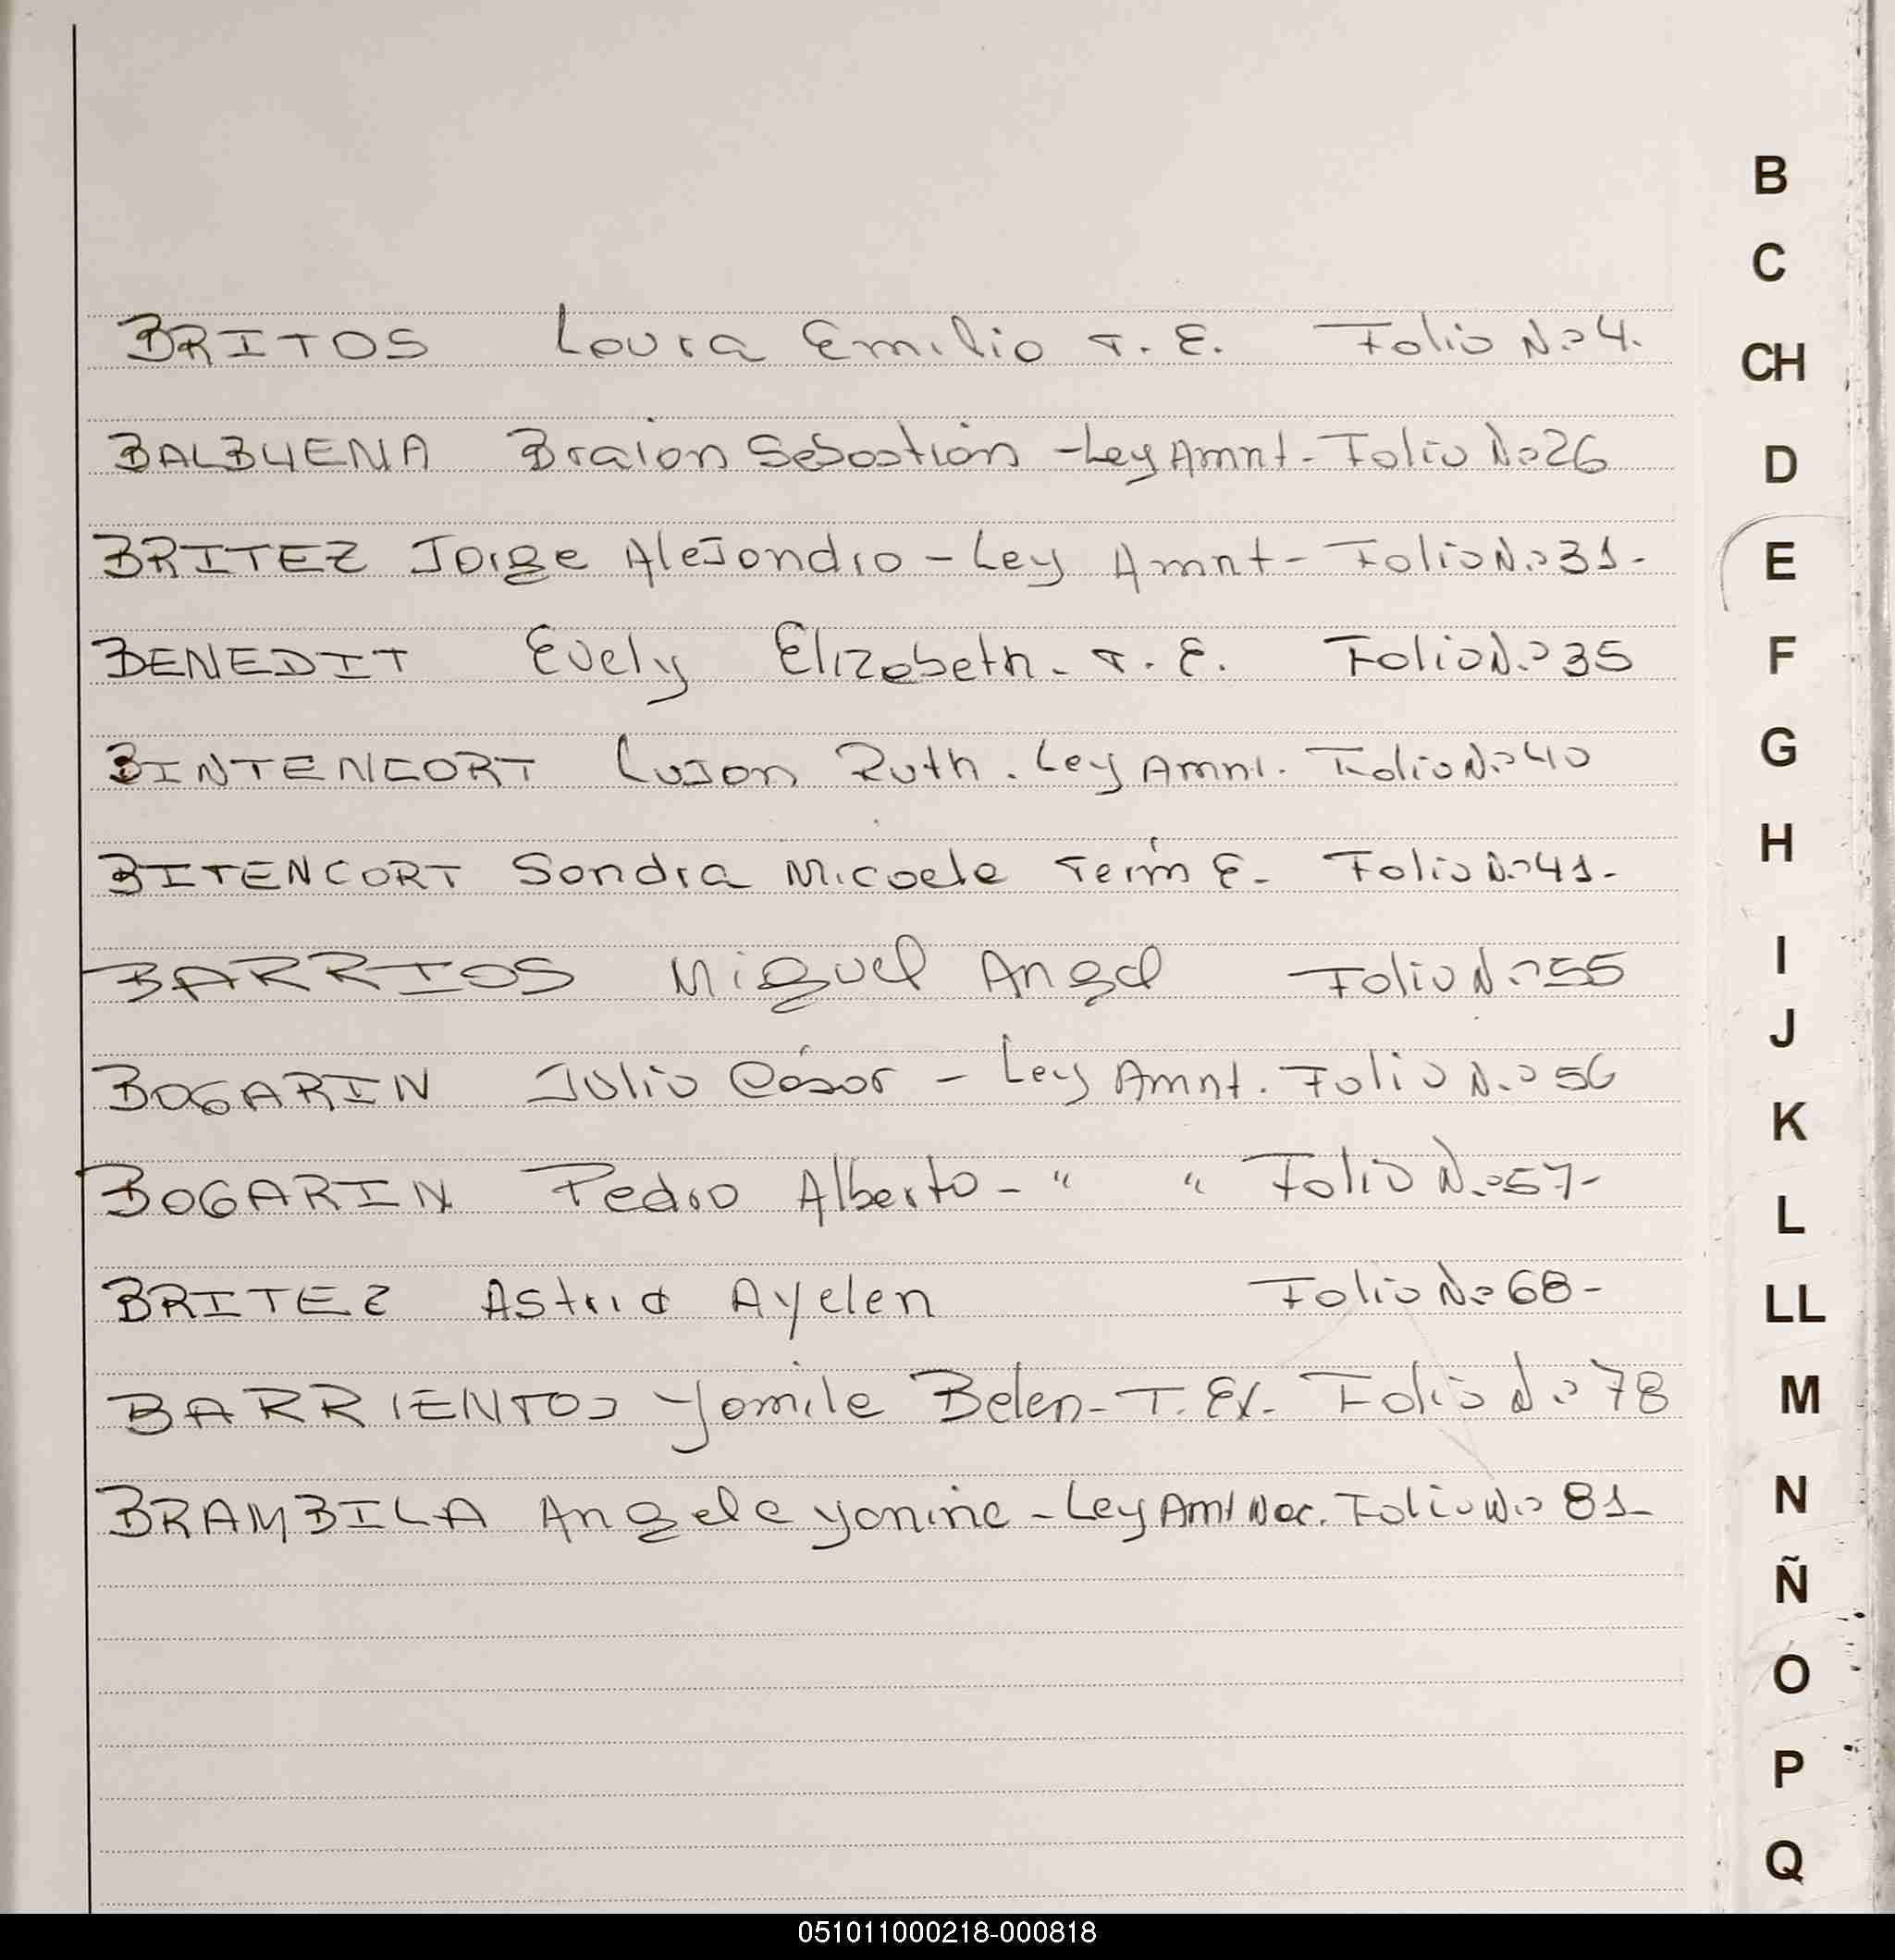 BRITOS Laura Emilio T. E. Folio N.º 4.
BALBUENA Braian Sebastián - Ley Amnt - Folio Nº 26
BRITEZ Jorge Alejandro - Ley Amnt - Folio N.º 31 -
BENEDIT Evely Elizabeth - T. E. Folio N.º 35
BINTENCORT Lujan Ruth . Ley Amnt. Folio N.º 40
BITENCORT Sandra Micaela Term E. Folio N.º 41 -
BARRIOS Miguel Angel Folio N.º 55
BOGARIN Julio César - Ley Amnt. Folio N.º 56
BOGARIN Pedro Alberto - " " Folio N.º 57 -
BRITEZ Astrid Ayelen Folio Nº 68 -
BARRIENTOS Yamile Belen - T. Ex. Folio N.º 78
BRAMBILA Angela Yanina - Ley Amt Nac. Folio N.º 81 -
B
C
CH
D
E
F
G
H
I
J
K
L
LL
M
N
Ñ
O
P
Q
051011000218-000818